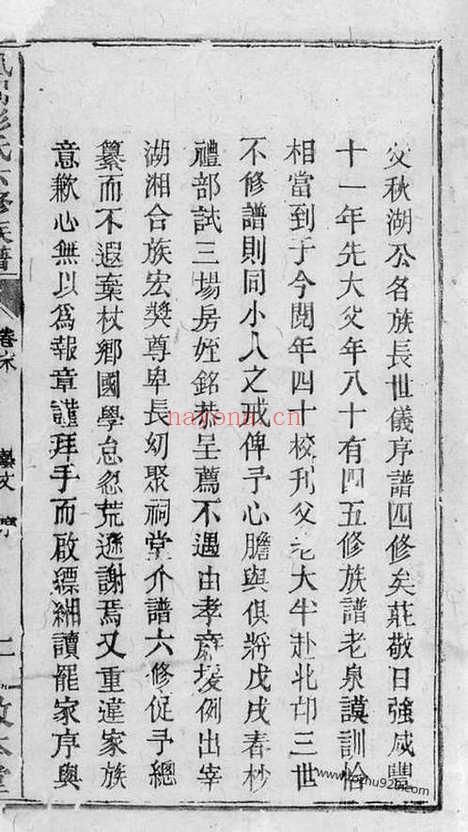 父秋湖公名族長世儀序譜四修矣莊敬日強咸豐
十一年先大父年八十有四五修族譜老泉謨訓恰
相當到于今閱年四十校刊父老大半赴北邙三世
不修譜則同小人之戒俾予心膽與俱將戊戌春杪
禮部試三場房姪銘恭呈薦不遇由孝廉援例出宰
湖湘合族宏獎尊卑長幼聚祠堂介譜六修促予總
纂而不遐棄杖鄉國學怠忽荒遜謝焉又重違家族
意歉心無以為報章謹拜手而啟縹緗讀罷家序與
彭氏六修族譜
卷末
藝文 序
敦本堂
nayona.cn
www.tozhu920.com